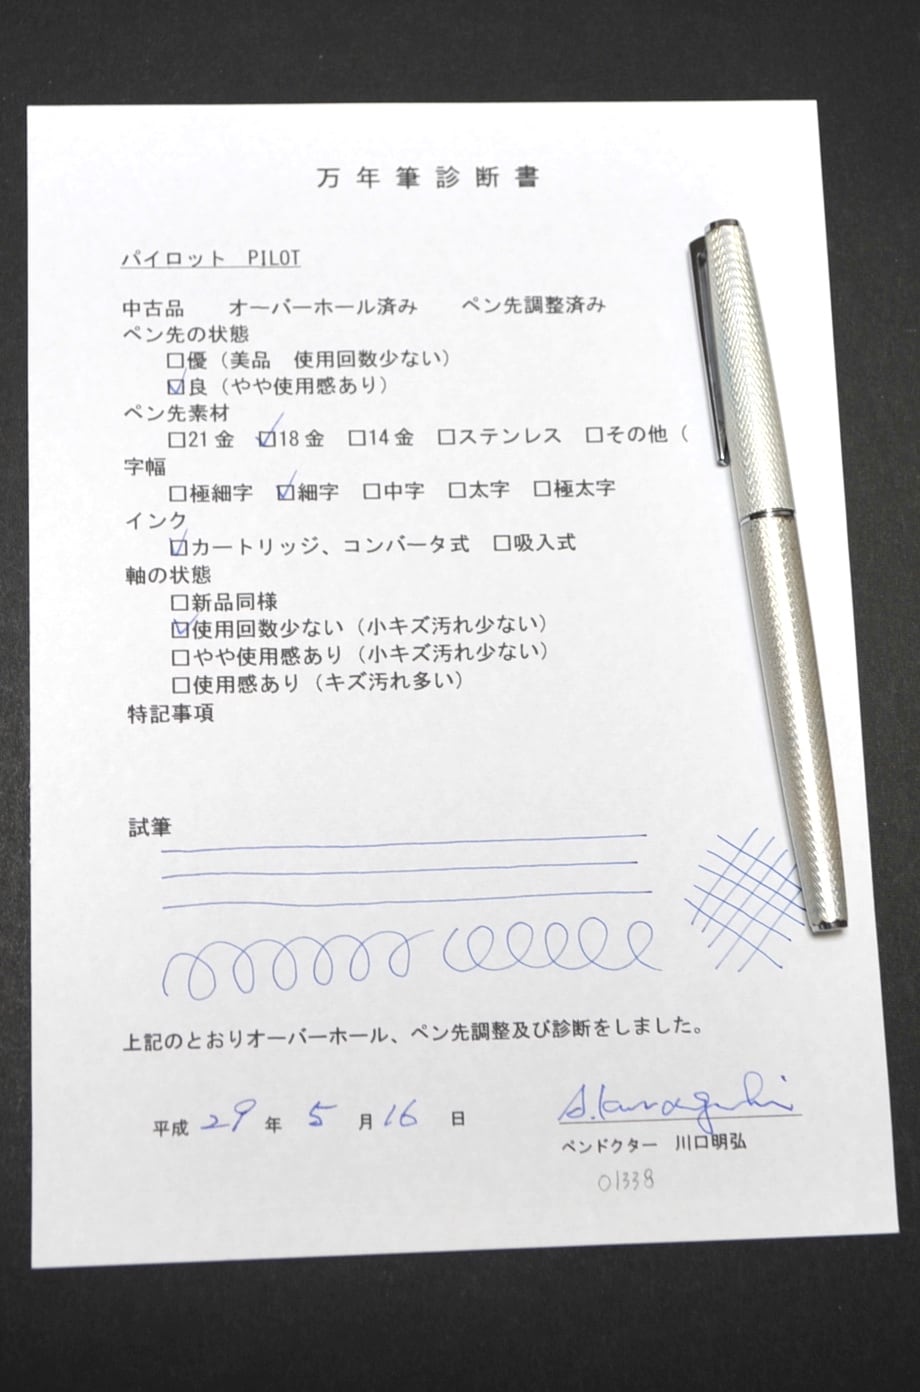 万年筆診断書
パイロット PILOT
中古品 オーバーホール済み ペン先調整済み
ペン先の状態
□優（美品 使用回数少ない）
☑良（やや使用感あり）
ペン先素材
□21金 ☑18金 □14金 □ステンレス □その他（
字幅
□極細字 ☑細字 □中字 □太字 □極太字
インク
☑カートリッジ、コンバータ式 □吸入式
軸の状態
□新品同様
☑使用回数少ない（小キズ汚れ少ない）
□やや使用感あり（小キズ汚れ少ない）
□使用感あり（キズ汚れ多い）
特記事項
試筆
上記のとおりオーバーホール、ペン先調整及び診断をしました。
平成 29 年 5 月 16 日
ペンドクター 川口明弘
01338